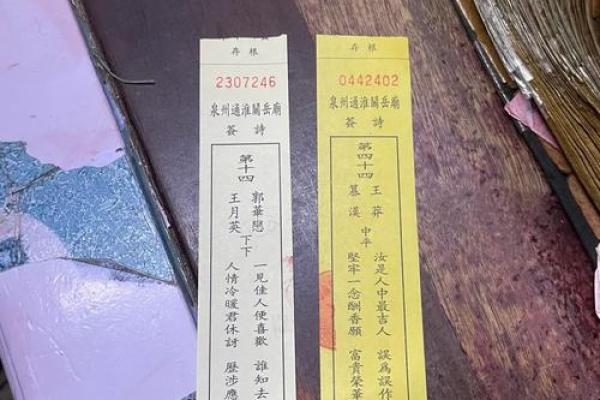 存根
2307246
泉州通淮關岳廟
簽詩
第十四
郭華戀
王月英
下下
一見佳人便喜歡 誰知去
人情冷暖君休訝 歷涉應
存根
0442402
泉州通淮關岳廟
簽詩
第四十四
王莽
篡漢
中平
汝是人中最吉人 誤為誤作
堅牢一念酬香願 富貴榮華